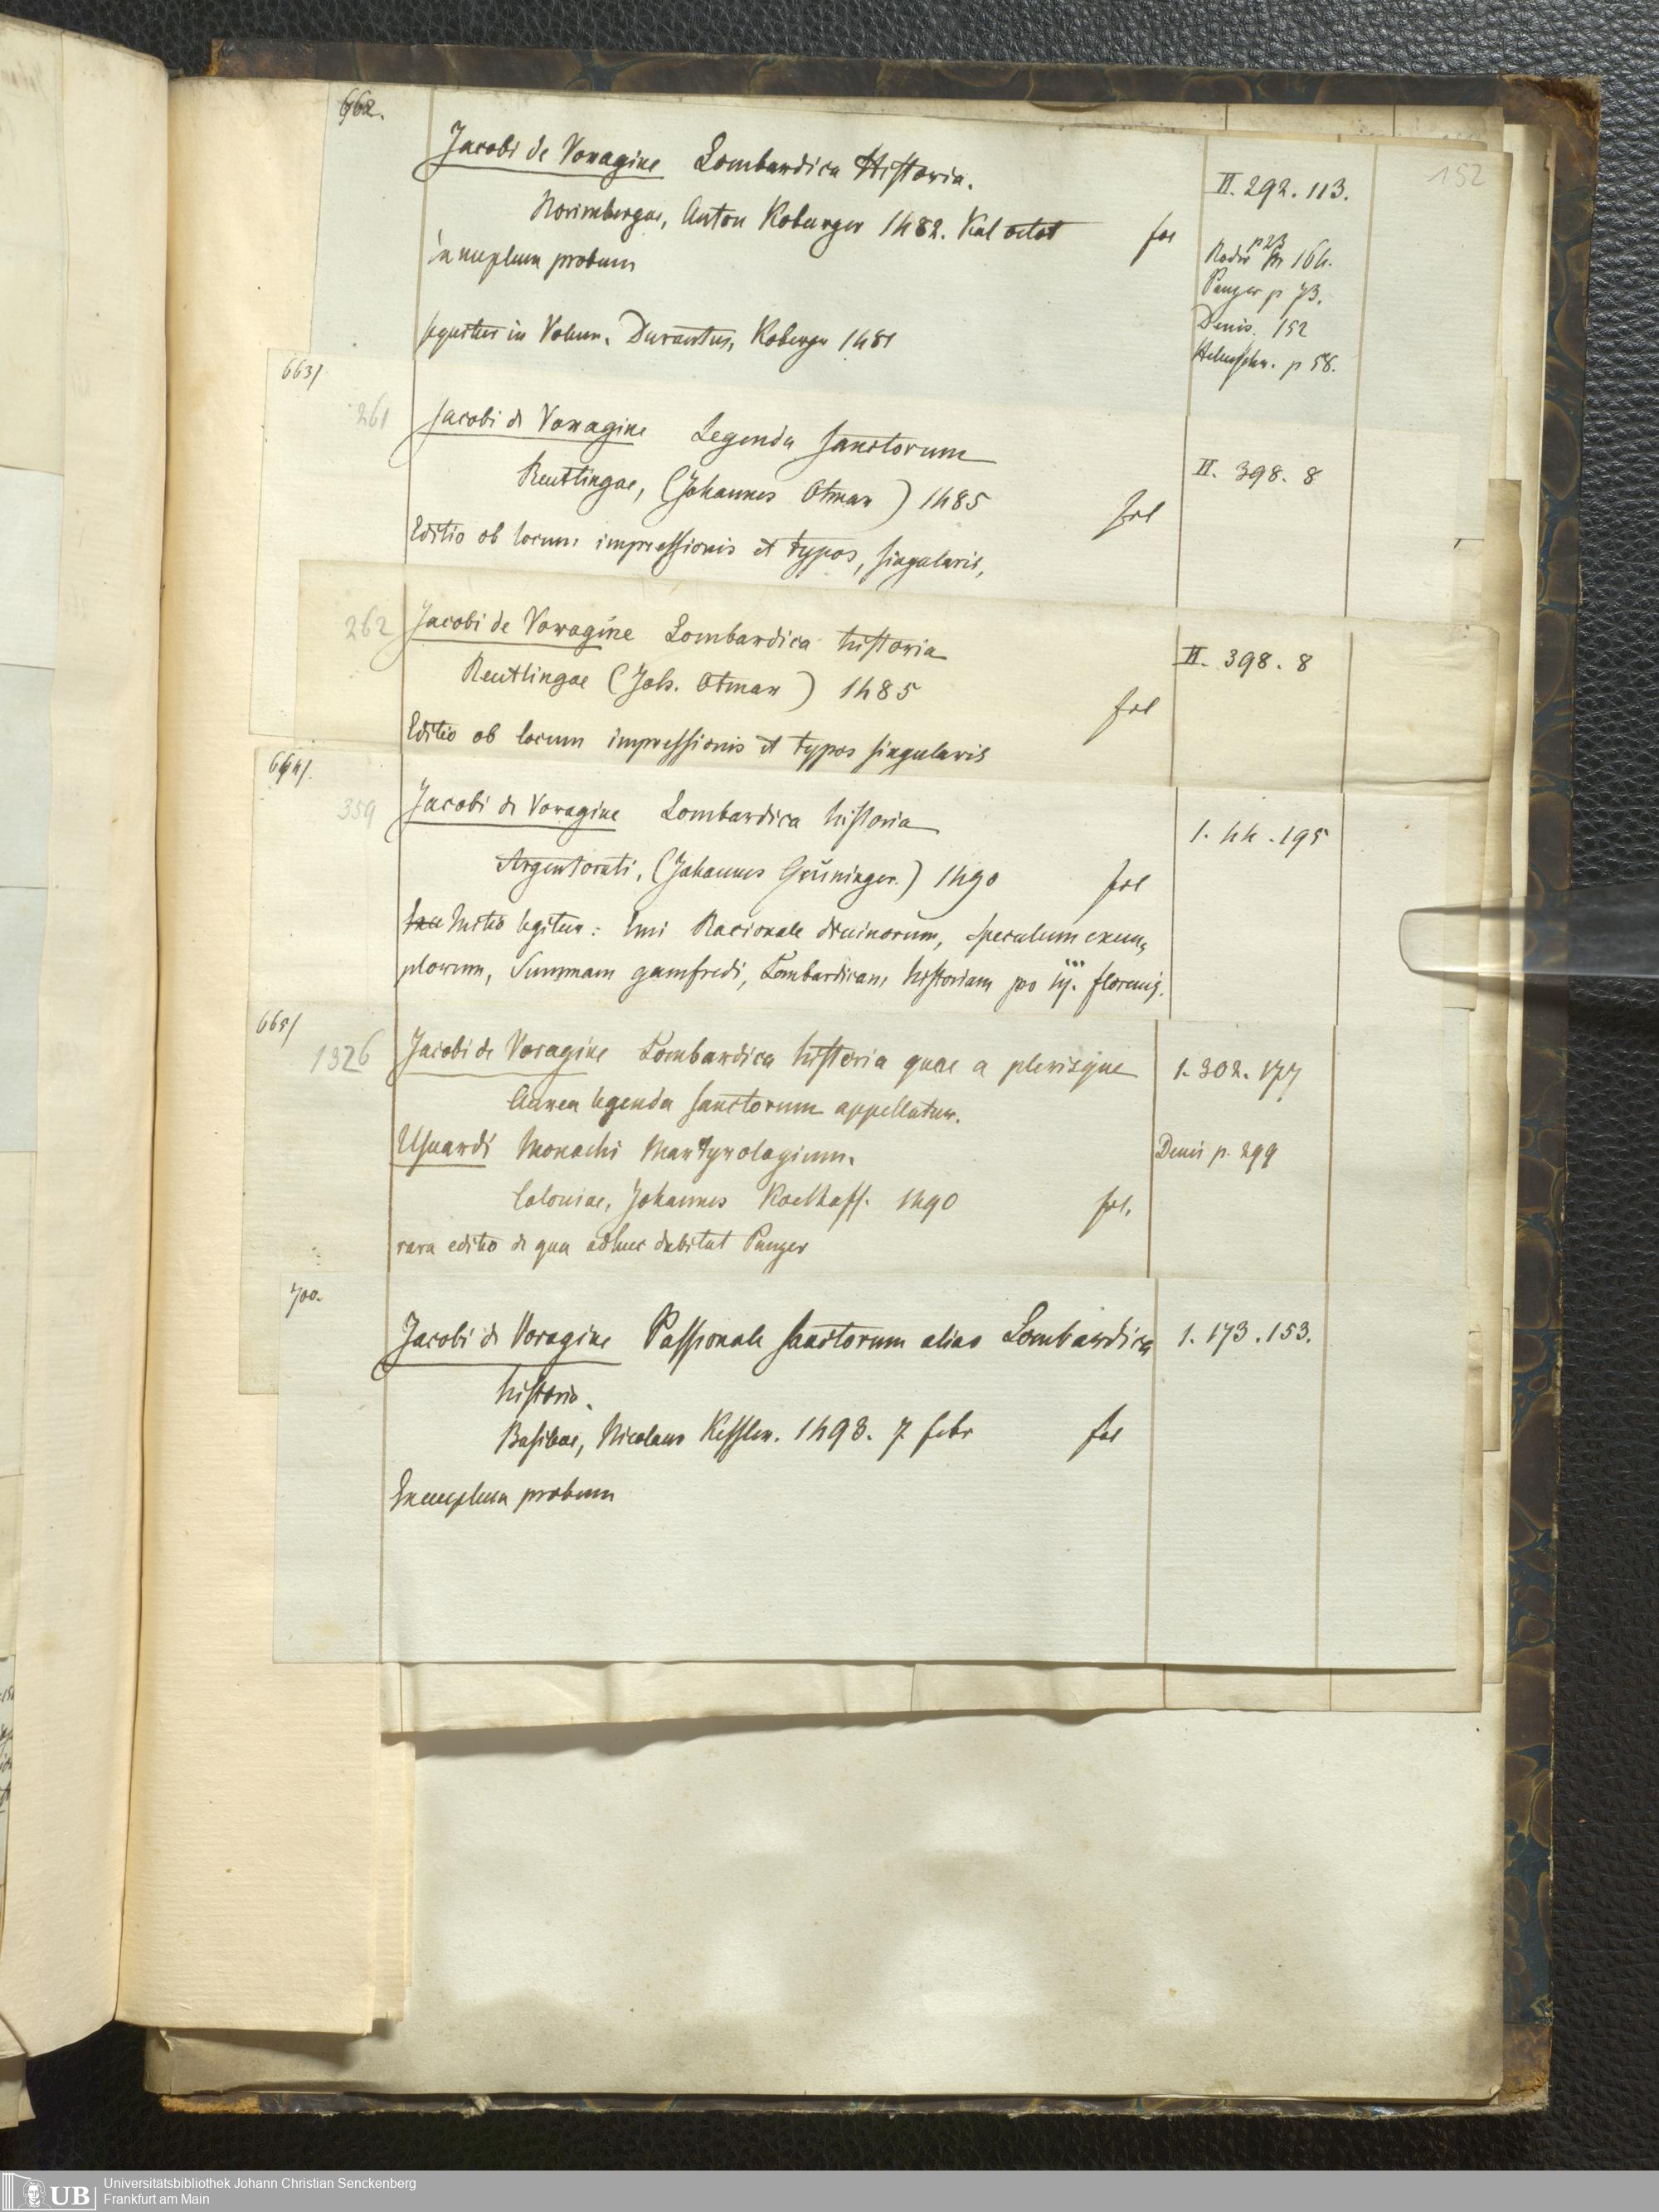 662.
152
Jacobi de Voragine Lombardica Historia.
II. 292. 113.
Norimbergae, Anton Koburger 1482. Kal octob fol
Exemplum probum
p 23
164.
Panzer p 73.
Denis. 152
sequitur in Volum. Durantus, Koberger 1481
p 58.
663/
261
Jacobi de Voragine Legenda sanctorum
Reutlingae, (Johannes Otmar) 1485 fol
II. 398. 8
Editio ob locum impressionis et typos, singularis,
262
Jacobi de Voragine Lombardica historia
Reutlingae (Joh. Otmar) 1485 fol
II. 398. 8
Editio ob locum impressionis et typos singularis
664/.
359
Jacobi de Voragine Lombardica historia
1. 44. 195
Argentorati, (Johannes Grüninger) 1490 fol
Initio legitur: Emi Racionale divinorum, speculum exem,
plorum, Summam gamfredi, Lombardicam historiam pro iij. florenis.
665/
1326
Jacobi de Voragine Lombardica historia quae a plerisque
1. 302. 177
Aurea legenda sanctorum appellatur.
Usuardi Monachi Martyrologium.
Denis p. 299
Coloniae, Johannes Koelhoff. 1490 fol.
rara editio de qua adhuc dubitat Panzer
700.
Jacobi de Voragine Passionale sanctorum alias Lombardica
1. 173. 153.
historia.
Basileae, Nicolaus Kessler. 1493. 7 febr fol
Exemplum probum
UB
Universitätsbibliothek Johann Christian Senckenberg
Frankfurt am Main